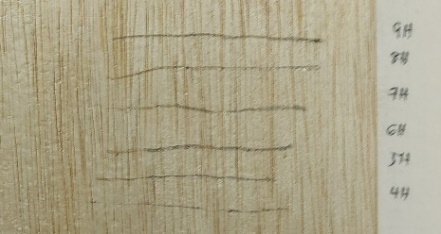 9H
8H
7H
6H
5H
4H